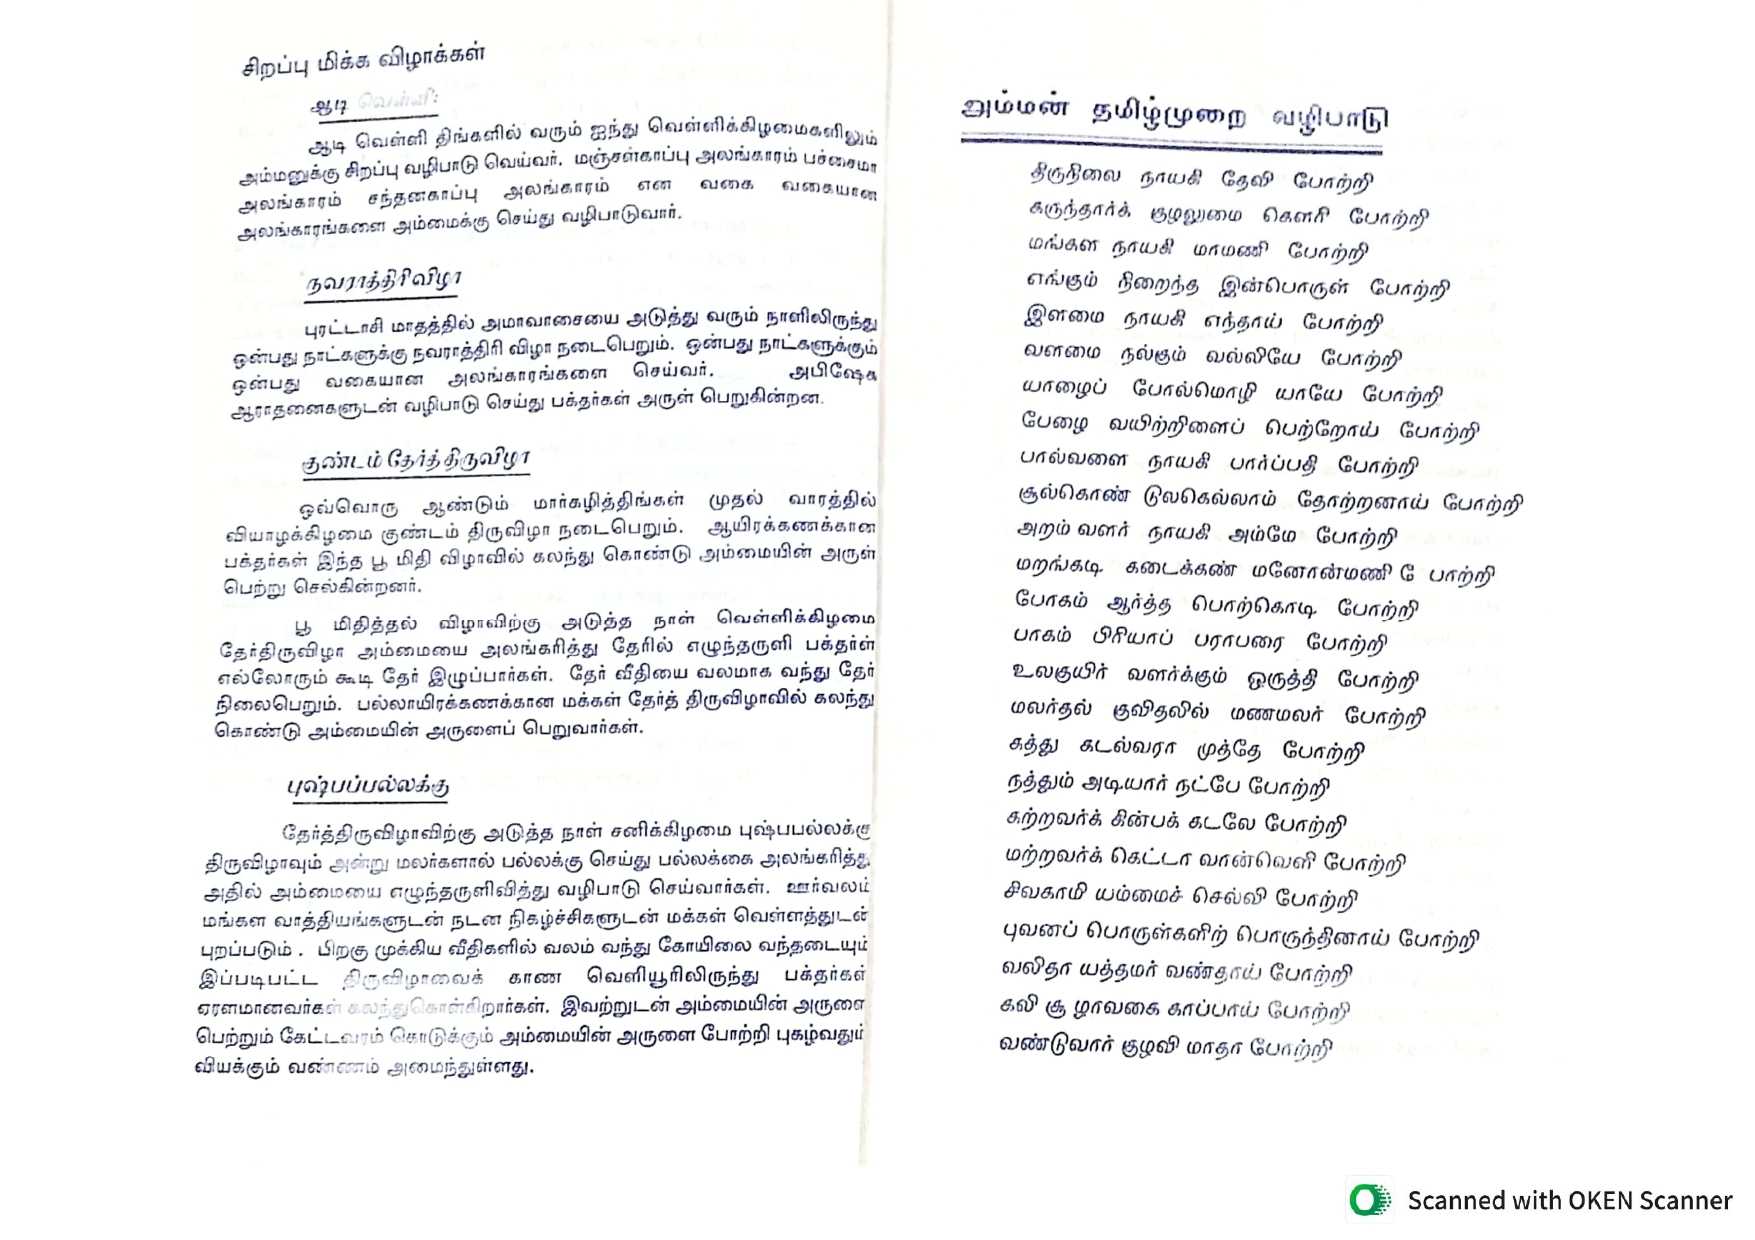 சிறப்பு மிக்க விழாக்கள்
ஆடி வெள்ளி:
ஆடி வெள்ளி திங்களில் வரும் ஐந்து வெள்ளிக்கிழமைகளிலும்
அம்மனுக்கு சிறப்பு வழிபாடு வெய்வர். மஞ்சள்காப்பு அலங்காரம் பச்சைமா
அலங்காரம் சந்தனகாப்பு அலங்காரம் என வகை வகையான
அலங்காரங்களை அம்மைக்கு செய்து வழிபாடுவார்.
நவராத்திரிவிழா
புரட்டாசி மாதத்தில் அமாவாசையை அடுத்து வரும் நாளிலிருந்து
ஒன்பது நாட்களுக்கு நவராத்திரி விழா நடைபெறும். ஒன்பது நாட்களுக்கும்
ஒன்பது வகையான அலங்காரங்களை செய்வர். அபிஷேக
ஆராதனைகளுடன் வழிபாடு செய்து பக்தர்கள் அருள் பெறுகின்றன.
குண்டம் தேர்த்திருவிழா
ஒவ்வொரு ஆண்டும் மார்கழித்திங்கள் முதல் வாரத்தில்
வியாழக்கிழமை குண்டம் திருவிழா நடைபெறும். ஆயிரக்கணக்கான
பக்தர்கள் இந்த பூ மிதி விழாவில் கலந்து கொண்டு அம்மையின் அருள்
பெற்று செல்கின்றனர்.
பூ மிதித்தல் விழாவிற்கு அடுத்த நாள் வெள்ளிக்கிழமை
தேர்திருவிழா அம்மையை அலங்கரித்து தேரில் எழுந்தருளி பக்தர்ள்
எல்லோரும் கூடி தேர் இழுப்பார்கள். தேர் வீதியை வலமாக வந்து தேர்
நிலைபெறும். பல்லாயிரக்கணக்கான மக்கள் தேர்த் திருவிழாவில் கலந்து
கொண்டு அம்மையின் அருளைப் பெறுவார்கள்.
புஷ்பப்பல்லக்கு
தேர்த்திருவிழாவிற்கு அடுத்த நாள் சனிக்கிழமை புஷ்பபல்லக்கு
திருவிழாவும் அன்று மலர்களால் பல்லக்கு செய்து பல்லக்கை அலங்கரித்து
அதில் அம்மையை எழுந்தருளிவித்து வழிபாடு செய்வார்கள். ஊர்வலம்
மங்கள வாத்தியங்களுடன் நடன நிகழ்ச்சிகளுடன் மக்கள் வெள்ளத்துடன்
புறப்படும். பிறகு முக்கிய வீதிகளில் வலம் வந்து கோயிலை வந்தடையும்
இப்படிபட்ட திருவிழாவைக் காண வெளியூரிலிருந்து பக்தர்கள்
ஏரளமானவர்கள் கலந்துகொள்கிறார்கள். இவற்றுடன் அம்மையின் அருளை
பெற்றும் கேட்டவரம் கொடுக்கும் அம்மையின் அருளை போற்றி புகழ்வதும்
வியக்கும் வண்ணம் அமைந்துள்ளது.
அம்மன் தமிழ்முறை வழிபாடு
திருநிலை நாயகி தேவி போற்றி
கருந்தார்க் குழலுமை கௌரி போற்றி
மங்கள நாயகி மாமணி போற்றி
எங்கும் நிறைந்த இன்பொருள் போற்றி
இளமை நாயகி எந்தாய் போற்றி
வளமை நல்கும் வல்லியே போற்றி
யாழைப் போல்மொழி யாயே போற்றி
பேழை வயிற்றிளைப் பெற்றோய் போற்றி
பால்வளை நாயகி பார்ப்பதி போற்றி
சூல்கொண் டுலகெல்லாம் தோற்றனாய் போற்றி
அறம் வளர் நாயகி அம்மே போற்றி
மறங்கடி கடைக்கண் மனோன்மணி பே பாற்றி
போகம் ஆர்த்த பொற்கொடி போற்றி
பாகம் பிரியாப் பராபரை போற்றி
உலகுயிர் வளர்க்கும் ஒருத்தி போற்றி
மலர்தல் குவிதலில் மணமலர் போற்றி
கத்து கடல்வரா முத்தே போற்றி
நத்தும் அடியார் நட்பே போற்றி
கற்றவர்க் கின்பக் கடலே போற்றி
மற்றவர்க் கெட்டா வான்வெளி போற்றி
சிவகாமி யம்மைச் செல்வி போற்றி
புவனப் பொருள்களிற் பொருந்தினாய் போற்றி
வலிதா யத்தமர் வண்தாய் போற்றி
கலி சூ ழாவகை காப்பாய் போற்றி
வண்டுவார் குழவி மாதா போற்றி
Scanned with OKEN Scanner